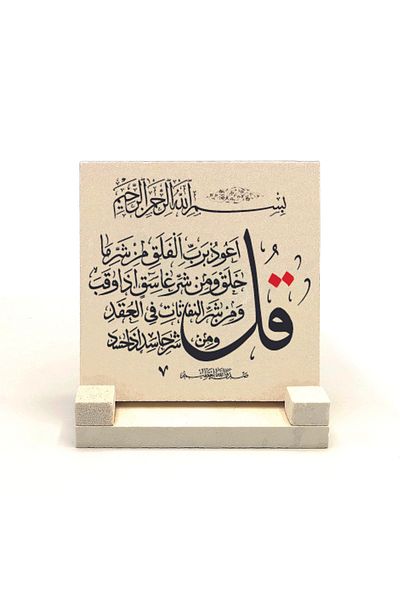 بسم الله الرحمن الرحيم
قل اعوذ برب الفلق من شر ما
خلق ومن شر غاسق اذا وقب
ومن شر النفاثات في العقد
ومن شر حاسد اذا حسد
صدق الله العظيم